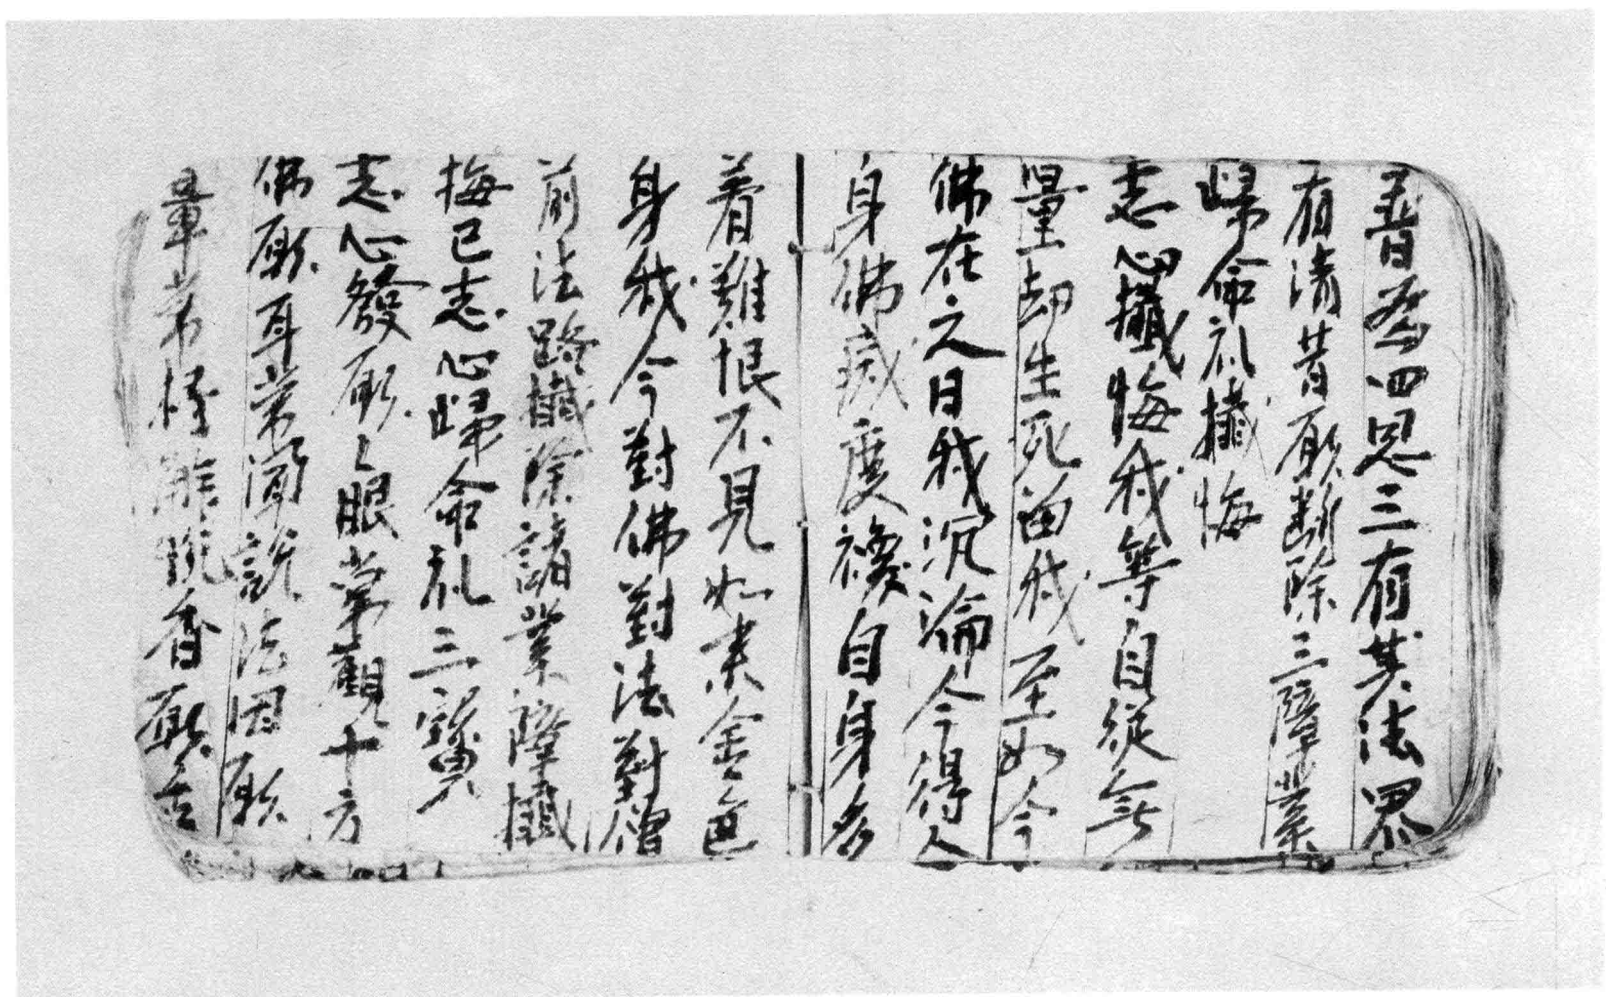 普為四恩三有其法界
有清昔願斷除三障業
歸命礼懺悔
志心懺悔我等自從無
量劫生死曲我至如今
佛在之日我沉淪今得人
身佛滅度懊自身多
着難恨不見如来金色
身我今對佛對法對僧
前法路懺除諸業障懺
悔已志心歸命礼三寶
志心發願願眼常觀十方
佛願耳常聞說法因願
鼻常 香願舌